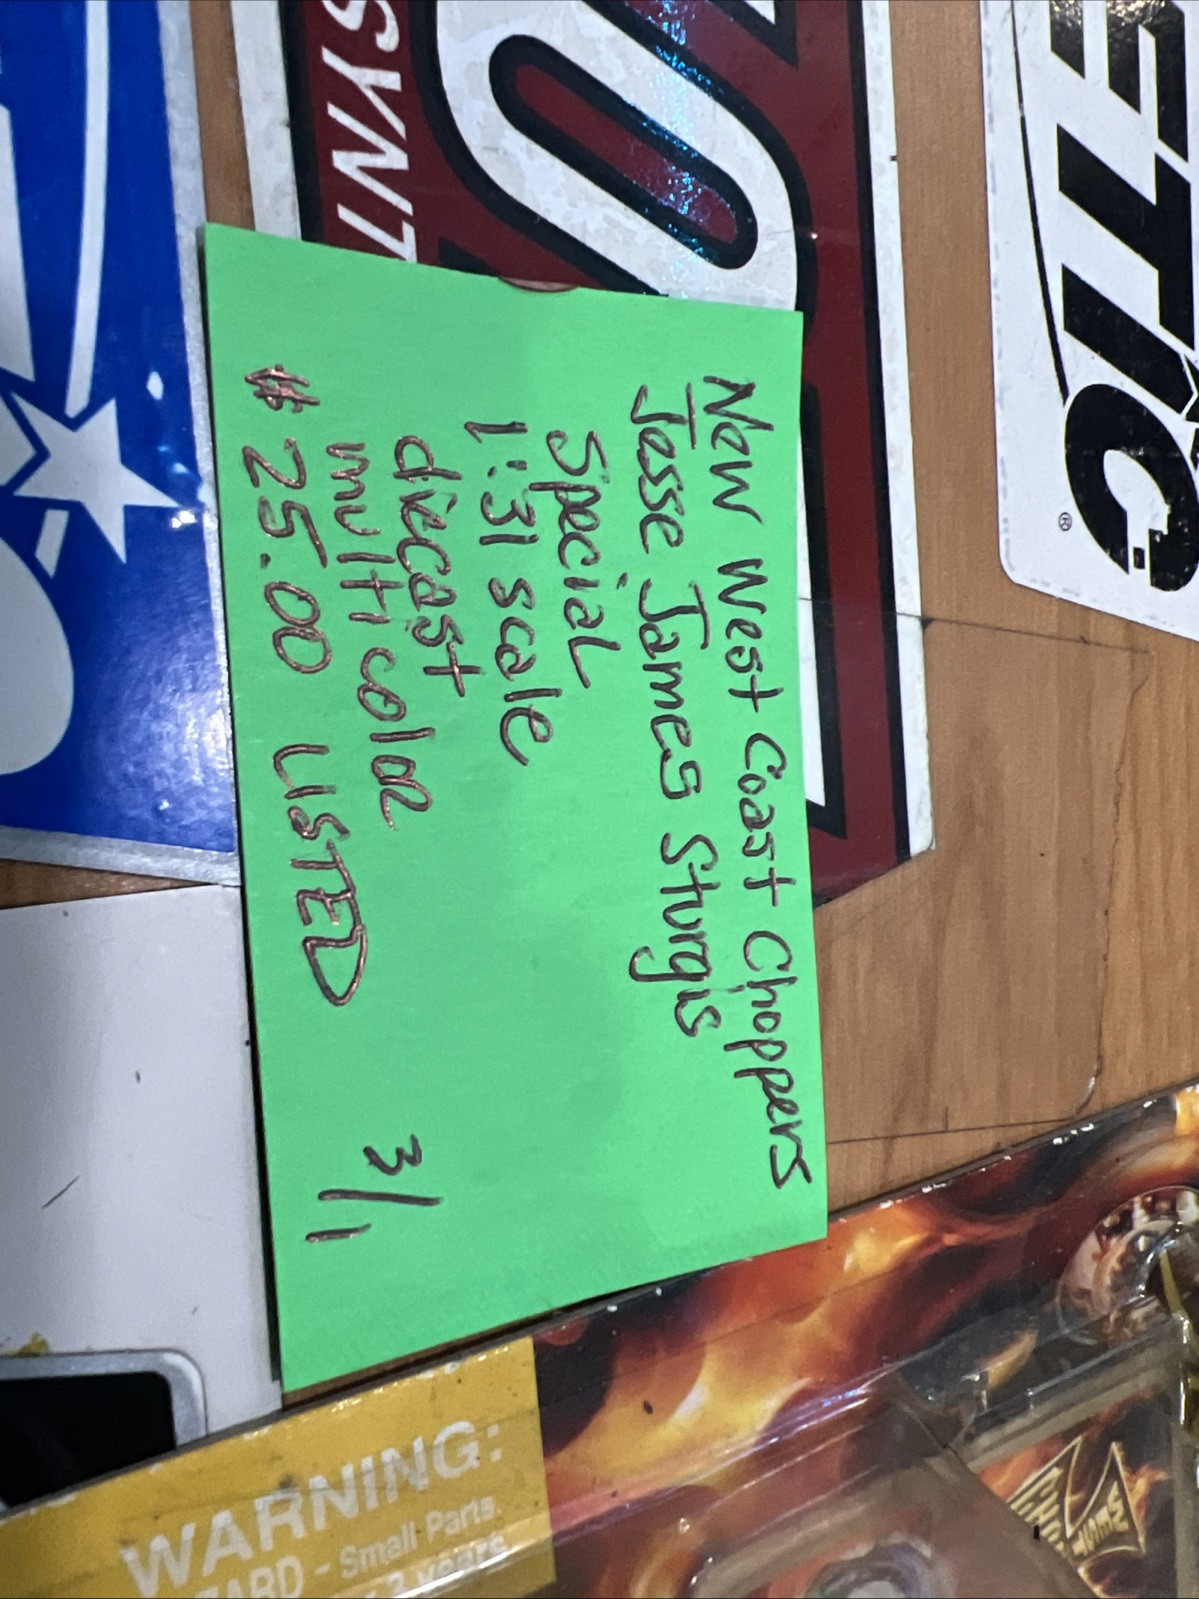 New West Coast Choppers
Jesse James Sturgis
Special
1:31 scale
diecast
multi color
$25.00 LISTED
3/1
SYNT
ETIC
®
WARNING:
ZARD - Small Parts.
3 years
WEST
CHO